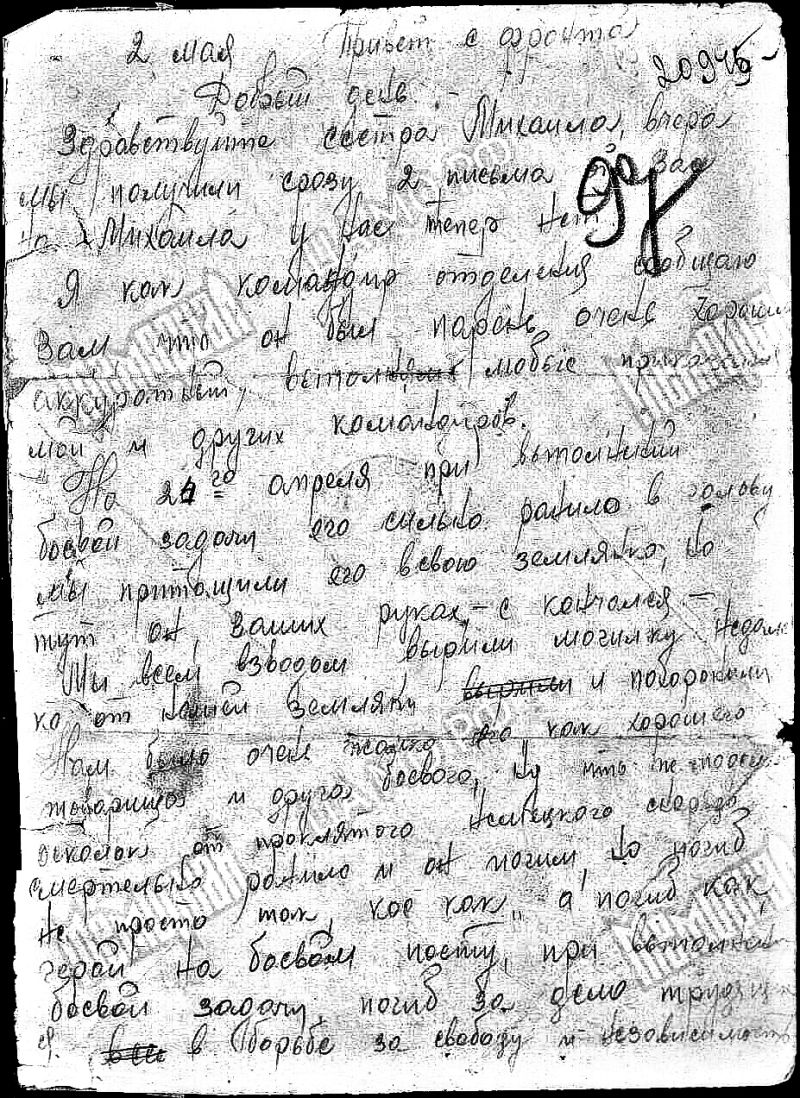 2 мая Привет с фронта
20946
Добрый день. -
Здравствуйте сестра Михаила, вчера
мы получили сразу 2 письма
но Михаила у нас тепер нет
Я как командир отделения сообщаю
вам что он был парень очень хороши
аккуратный, выполнял любые приказания
мои и других командиров.
Но 24го апреля при выполнении
боевой задачи его сильно ранило в голову
мы притащили его всвою землянко, но
тут он, внаших руках, - с кончался -
Мы всем взводом вырыли могилку недале
ко от нашей землянки и похоронили
Нам было очен жалко его как хорошего
товарища и друга боевого, ну что ж
осколок от проклятого немецкого снаряда
смертельно ранило и он погиб, но погиб
не просто так, кое как, а погиб как
герой на боевом посту, при выполнен
боевой задачи, погиб за дело трудящи
ся. в борьбе за свободу и независимость